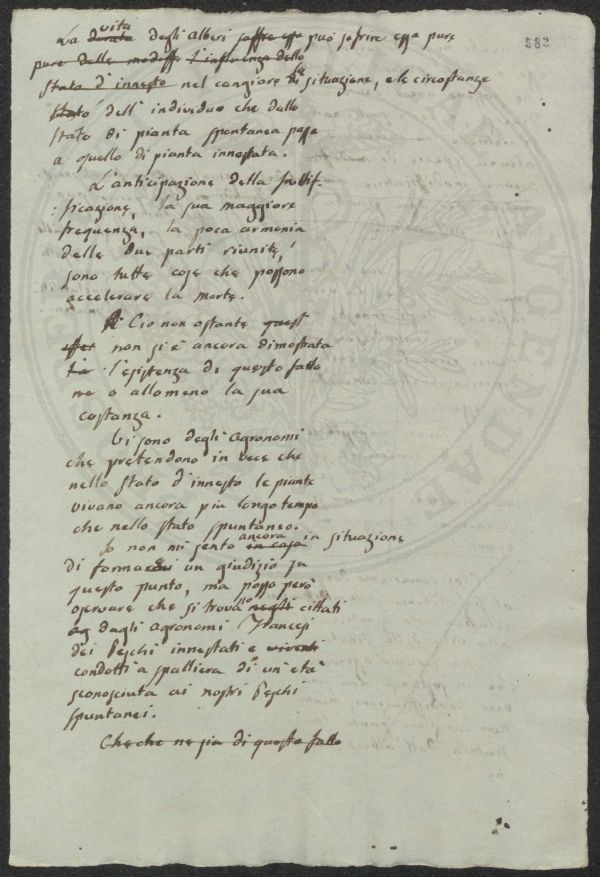 582
La durata vita degli Alberi soffre esse può sofrire esse pure
pure delle modiff. L'influenza dello
stato d'innesto nel cangiare di situazione, e le circostanze
stato dell' individuo che dallo
stato di pianta spontanea passa
a quello di pianta innestata.
L'anticipazione della frottif-
:ficazione, la sua maggiore
frequenza, la poca armonia
delle due parti riunite,
sono tutte cose che possono
accelerare la morte.
Cio non ostante quest
effet non si è ancora dimostrata
l'esistenza di questo fatto
ne o allomeno la sua
costanza.
Vi sono degli agronomi
che pretendono in vece che
nello stato d'innesto le piante
vivano ancora piu longo tempo
che nello stato spuntaneo.
Io non mi sento in caso ancora in situazione
di formare un giudizio su
questo punto, ma posso però
oservare che si trovano negli cittati
ag dagli agronomi Francesi
dei Peschi innestati e viventi
condotti a spalliera di un' età
sconosciuta ai nostri Peschi
spuntanei.
Che che ne sia di questo fatto